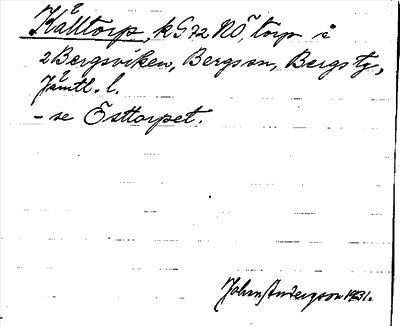 Kålltorp, k G72 NÖ, torp å
2 Bergsviken, Bergs sn, Bergs tg,
Jämtl. l.
- se Östtorpet.
John Andersson 1931.